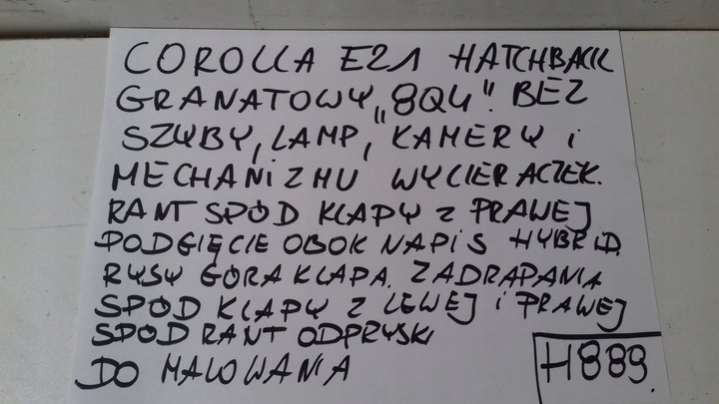 COROLLA E21 HATCHBACK
GRANATOWY „8Q4". BEZ
SZYBY, LAMP, KAMERY i
MECHANIZMU WYCIERACZEK.
RANT SPÓD KLAPY Z PRAWEJ
PODGIĘCIE OBOK NAPIS HYBRID.
RYSY GÓRA KLAPA. ZADRAPANIA
SPÓD KLAPY Z LEWEJ i PRAWEJ
SPÓD RANT ODPRYSKI
DO MALOWANIA
H889.